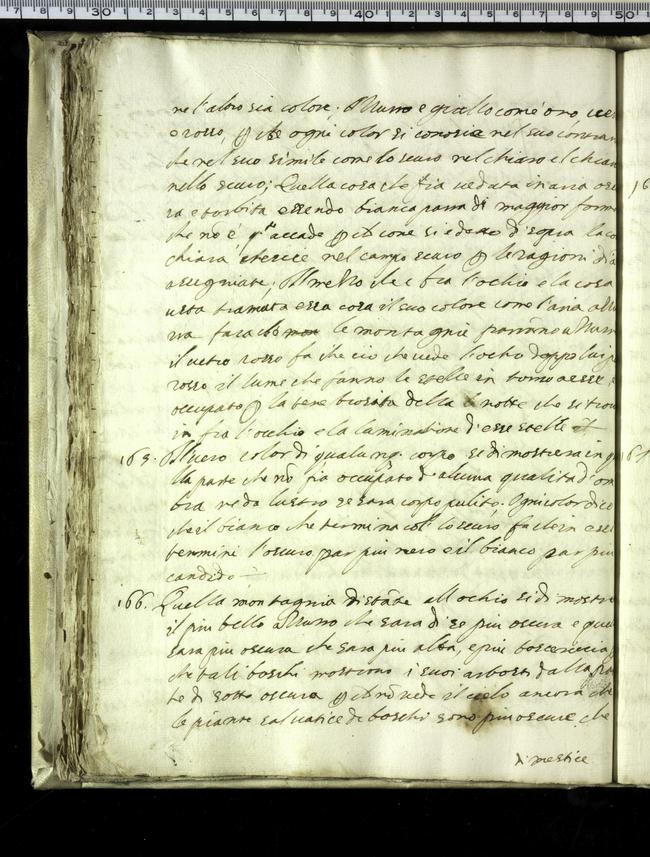 ne l'altro sia colore; Azurro e giallo com'è oro, ver
e rosso, ꝑ che ogni color si conosce nel suo contra
che nel suo simile come lo scuro nel chiaro e'l chia
nello scuro; Quella cosa che fia veduta in aria os
ra e torbita essendo bianca parrà di maggior form
che nō è, accade ꝑ come si è detto di sopra la co
chiara cresce nel campo scuro ꝑ le ragioni di
assegniate; che è fra l'ochio e la cosa
essa cosa il suo colore come l'aria azu
ra farà che le montagnie azurr
il vetro rosso fa che ciò che vede l'ochio doppo lui
rosso il lume che fanno le stelle in torno a esse
occupato ꝑ la tenebrosità della notte che si trov
in fra l'occhio e la luminatione d'esse stelle
165. Il vero color di qualunq. corpo si dimostrerà in q
lla parte che nō fia occupato d'alcuna qualità d'om
bra nè da lustro se sarà corpo pulito. Ogni color dico
che il bianco che termina col' lo scuro fa che in essi
termini l'oscuro par più nero e il bianco par più
candido
166. Quella montagnia distāte all'ochio si di mostr
il più bello azurro che sarà di se più oscura e que
sarà più oscura che sarà più alta, e più boschereccia
che tali boschi mostrono i suoi arbosti dalla
te di sotto oscura ꝑ nō vede il cielo ancora
le piante salvatice de boschi sono più oscure che
dimestice